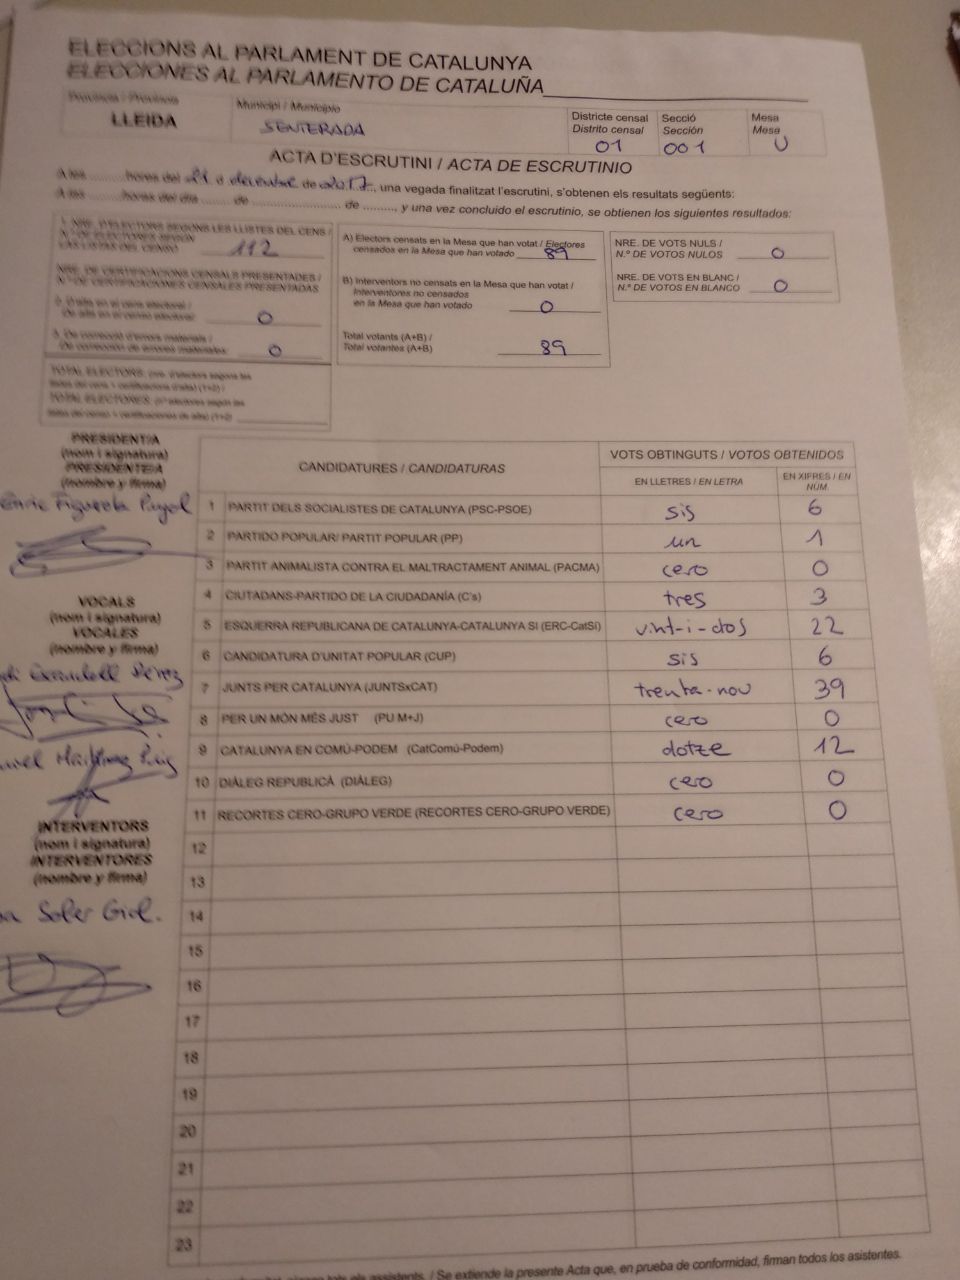 ELECCIONS AL PARLAMENT DE CATALUNYA
ELECCIONES AL PARLAMENTO DE CATALUÑA
Província / Provincia
LLEIDA
Municipi / Municipio
SENTERADA
Districte censal
Distrito censal
01
Secció
Sección
001
Mesa
Mesa
U
ACTA D'ESCRUTINI / ACTA DE ESCRUTINIO
A les ..........hores del 21 d desembre de 2017.., una vegada finalitzat l'escrutini, s'obtenen els resultats següents:
A las ..........horas del día ........ de ........................ de ........., y una vez concluido el escrutinio, se obtienen los siguientes resultados:
1. NRE. D'ELECTORS SEGONS LES LLISTES DEL CENS /
N.º DE ELECTORES SEGÚN
LAS LISTAS DEL CENSO
112
NRE. DE CERTIFICACIONS CENSALS PRESENTADES /
N.º DE CERTIFICACIONES CENSALES PRESENTADAS
2. D'alta en el cens electoral /
De alta en el censo electoral:
0
3. De correcció d'errors materials /
De corrección de errores materiales:
0
TOTAL ELECTORS: (nre. d'electors segons les
llistes del cens + certificacions d'alta) (1+2) /
TOTAL ELECTORES: (nº electores según las
listas del censo + certificaciones de alta) (1+2)
A) Electors censats en la Mesa que han votat / Electores
censados en la Mesa que han votado
89
B) Interventors no censats en la Mesa que han votat /
Interventores no censados
en la Mesa que han votado
0
Total votants (A+B) /
Total votantes (A+B)
89
NRE. DE VOTS NULS /
N.º DE VOTOS NULOS
0
NRE. DE VOTS EN BLANC /
N.º DE VOTOS EN BLANCO
0
PRESIDENT/A
(nom i signatura)
PRESIDENTE/A
(nombre y firma)
Enric Figuerola Payol
VOCALS
(nom i signatura)
VOCALES
(nombre y firma)
INTERVENTORS
(nom i signatura)
INTERVENTORES
(nombre y firma)
Soler Giol.
CANDIDATURES / CANDIDATURAS
VOTS OBTINGUTS / VOTOS OBTENIDOS
EN LLETRES / EN LETRA
EN XIFRES / EN
NÚM.
1 PARTIT DELS SOCIALISTES DE CATALUNYA (PSC-PSOE) sis 6
2 PARTIDO POPULAR/ PARTIT POPULAR (PP) un 1
3 PARTIT ANIMALISTA CONTRA EL MALTRACTAMENT ANIMAL (PACMA) cero 0
4 CIUTADANS-PARTIDO DE LA CIUDADANÍA (C's) tres 3
5 ESQUERRA REPUBLICANA DE CATALUNYA-CATALUNYA SI (ERC-CatSí) vint-i-dos 22
6 CANDIDATURA D'UNITAT POPULAR (CUP) sis 6
7 JUNTS PER CATALUNYA (JUNTSxCAT) trenta-nou 39
8 PER UN MÓN MÉS JUST (PU M+J) cero 0
9 CATALUNYA EN COMÚ-PODEM (CatComú-Podem) dotze 12
10 DIÀLEG REPUBLICÀ (DIÀLEG) cero 0
11 RECORTES CERO-GRUPO VERDE (RECORTES CERO-GRUPO VERDE) cero 0
12
13
14
15
16
17
18
19
20
21
22
23
els assistents. / Se extiende la presente Acta que, en prueba de conformidad, firman todos los asistentes.